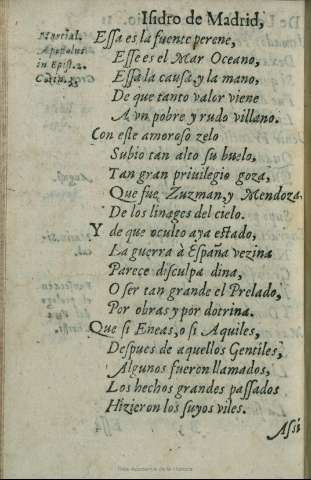 Isidro de Madrid,
Marcial.
Apostolus
in Epist. 2.
Corin.
Essa es la fuente perene,
Esse es el Mar Oceano,
Essa la causa, y la mano,
De que tanto valor viene
A vn pobre y rudo villano.
Con este amoroso zelo
Subio tan alto su buelo,
Tan gran priuilegio goza,
Que fue Zuzman, y Mendoza
De los linages del cielo.
Y de que oculto aya estado,
La guerra à España vezina
Parece disculpa dina,
O ser tan grande el Prelado,
Por obras y por dotrina.
Que si Eneas, o si Aquiles,
Despues de aquellos Gentiles,
Algunos fueron llamados,
Los hechos grandes passados
Hizieron los suyos viles.
Assi
Real Academia de la Historia